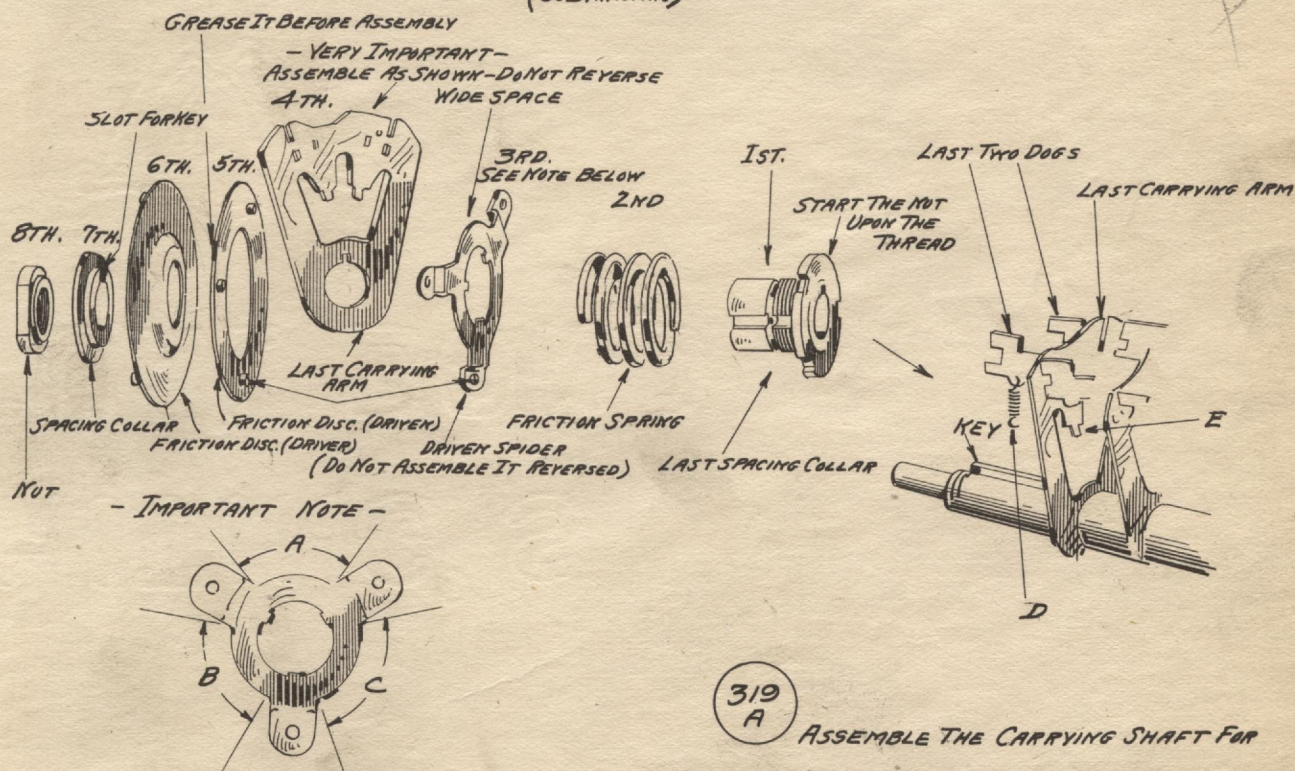 GREASE IT BEFORE ASSEMBLY
- VERY IMPORTANT -
ASSEMBLE AS SHOWN - DO NOT REVERSE
4TH.
WIDE SPACE
SLOT FOR KEY
6TH.
5TH.
3RD.
SEE NOTE BELOW
2ND
1ST.
START THE NUT
UPON THE
THREAD
LAST TWO DOGS
LAST CARRYING ARM
8TH.
7TH.
LAST CARRYING
ARM
SPACING COLLAR
FRICTION DISC. (DRIVEN)
FRICTION DISC. (DRIVER)
DRIVEN SPIDER
(DO NOT ASSEMBLE IT REVERSED)
FRICTION SPRING
LAST SPACING COLLAR
KEY
E
D
NUT
- IMPORTANT NOTE -
A
B
C
319
A
ASSEMBLE THE CARRYING SHAFT FOR